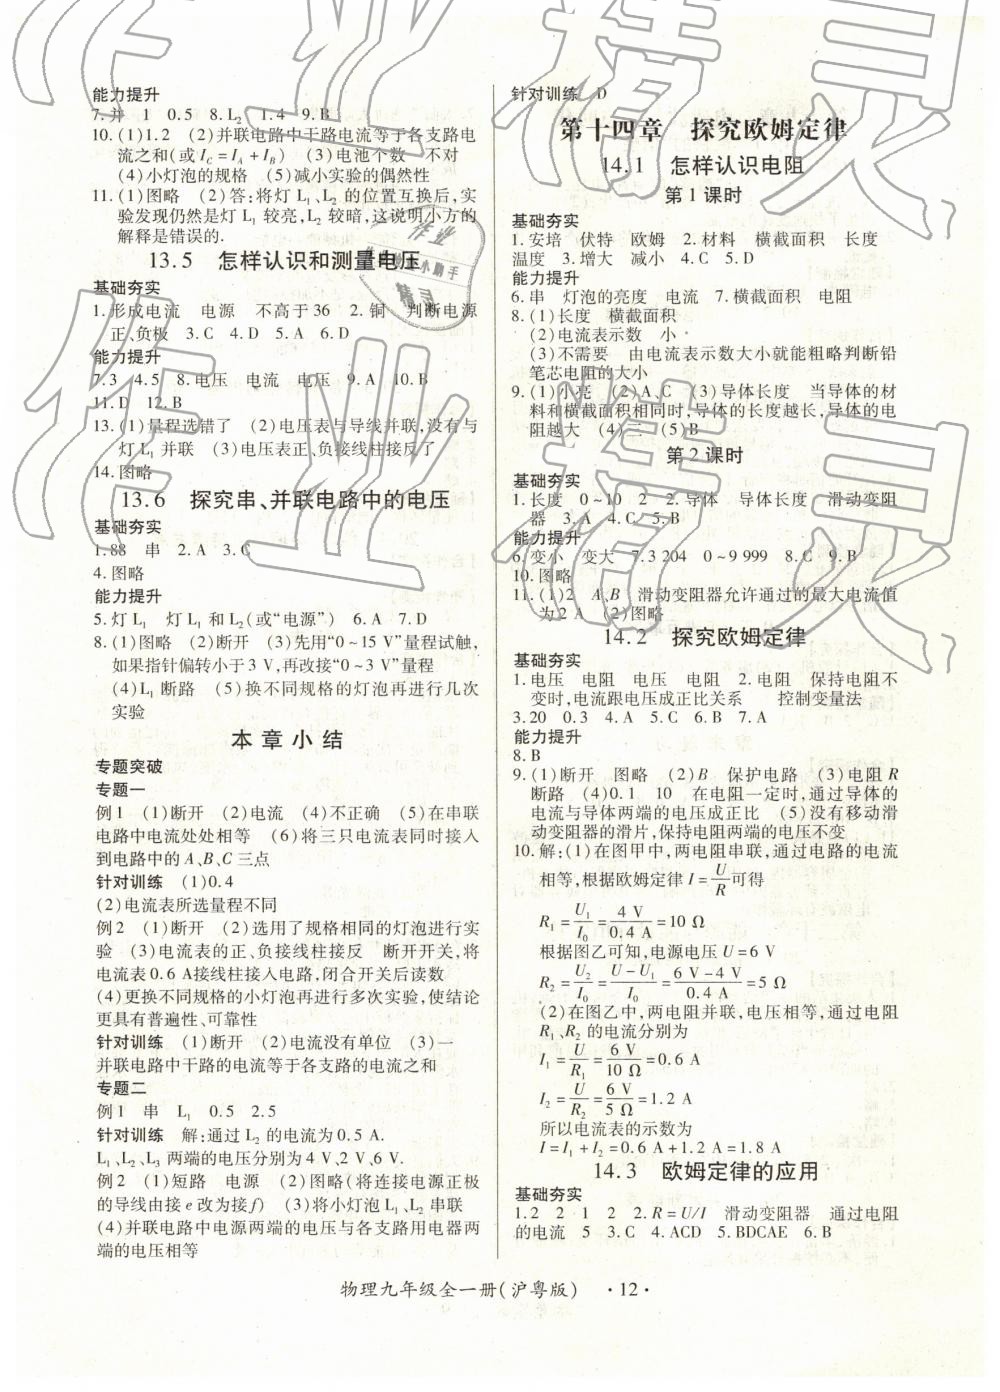 能力提升
7.并　1　0.5　8.L₂　1.4　9.B
10.(1)1.2　(2)并联电路中干路电流等于各支路电
流之和(或 I_C=I_A+I_B)　(3)电池个数　不对
(4)小灯泡的规格　(5)减小实验的偶然性
11.(1)图略　(2)答:将灯 L₁、L₂ 的位置互换后,实
验发现仍然是灯 L₁ 较亮,L₂ 较暗,这说明小方的
解释是错误的.
13.5　怎样认识和测量电压
基础夯实
1.形成电流　电源　不高于36　2.铜　判断电源
正、负极　3.C　4.D　5.A　6.D
能力提升
7.3　4.5　8.电压　电流　电压　9.A　10.B
11.D　12.B
13.(1)量程选错了　(2)电压表与导线并联,没有与
灯 L₁ 并联　(3)电压表正、负接线柱接反了
14.图略
13.6　探究串、并联电路中的电压
基础夯实
1.88　串　2.A　3.C
4.图略
能力提升
5.灯 L₁　灯 L₁ 和 L₂(或“电源”)　6.A　7.D
8.(1)图略　(2)断开　(3)先用“0~15 V”量程试触,
如果指针偏转小于 3 V,再改接“0~3 V”量程
(4)L₁ 断路　(5)换不同规格的灯泡再进行几次
实验
本章小结
专题突破
专题一
例1　(1)断开　(2)电流　(4)不正确　(5)在串联
电路中电流处处相等　(6)将三只电流表同时接入
到电路中的 A、B、C 三点
针对训练　(1)0.4
(2)电流表所选量程不同
例2　(1)断开　(2)选用了规格相同的灯泡进行实
验　(3)电流表的正、负接线柱接反　断开开关,将
电流表 0.6 A接线柱接入电路,闭合开关后读数
(4)更换不同规格的小灯泡再进行多次实验,使结论
更具有普遍性、可靠性
针对训练　(1)断开　(2)电流没有单位　(3)一
并联电路中干路的电流等于各支路的电流之和
专题二
例1　串　L₁　0.5　2.5
针对训练　解:通过 L₂ 的电流为 0.5 A.
L₁、L₂、L₃ 两端的电压分别为 4 V、2 V、6 V.
例2　(1)短路　电源　(2)图略(将连接电源正极
的导线由接 e 改为接 f)　(3)将小灯泡 L₂ 串联
(4)并联电路中电源两端的电压与各支路用电器两
端的电压相等
针对训练　D
第十四章　探究欧姆定律
14.1　怎样认识电阻
第1课时
基础夯实
1.安培　伏特　欧姆　2.材料　横截面积　长度
温度　3.增大　减小　4.C　5.D
能力提升
6.串　灯泡的亮度　电流　7.横截面积　电阻
8.(1)长度　横截面积
(2)电流表示数　小
(3)不需要　由电流表示数大小就能粗略判断铅
笔芯电阻的大小
9.(1)小亮　(2)A、C　(3)导体长度　当导体的材
料和横截面积相同时,导体的长度越长,导体的电
阻越大　(4)三　(5)B
第2课时
基础夯实
1.长度　0~10　2　2.导体　导体长度　滑动变阻
器　3.A　4.C　5.B
能力提升
6.变小　变大　7.3 204　0~9 999　8.C　9.B
10.图略
11.(1)2　A、B　滑动变阻器允许通过的最大电流值
为 2 A　(2)图略
14.2　探究欧姆定律
基础夯实
1.电压　电阻　电压　电阻　2.电阻　保持电阻不
变时,电流跟电压成正比关系　控制变量法
3.20　0.3　4.A　5.C　6.B　7.A
能力提升
8.B
9.(1)断开　图略　(2)B　保护电路　(3)电阻 R
断路　(4)0.1　10　在电阻一定时,通过导体的
电流与导体两端的电压成正比　(5)没有移动滑
动变阻器的滑片,保持电阻两端的电压不变
10.解:(1)在图甲中,两电阻串联,通过电路的电流
相等,根据欧姆定律 I=U/R 可得
R₁=U₁/I₀=4 V/0.4 A=10 Ω
根据图乙可知,电源电压 U=6 V
R₂=U₂/I₀=(U-U₁)/I₀=(6 V-4 V)/0.4 A=5 Ω
(2)在图乙中,两电阻并联,电压相等,通过电阻
R₁、R₂ 的电流分别为
I₁=U/R₁=6 V/10 Ω=0.6 A
I₂=U/R₂=6 V/5 Ω=1.2 A
所以电流表的示数为
I=I₁+I₂=0.6 A+1.2 A=1.8 A
14.3　欧姆定律的应用
基础夯实
1.2　2　1　2　2.R=U/I　滑动变阻器　通过电阻
的电流　5　3.C　4.ACD　5.BDCAE　6.B
物理九年级全一册(沪粤版)　·12·
作业精灵
作业精灵